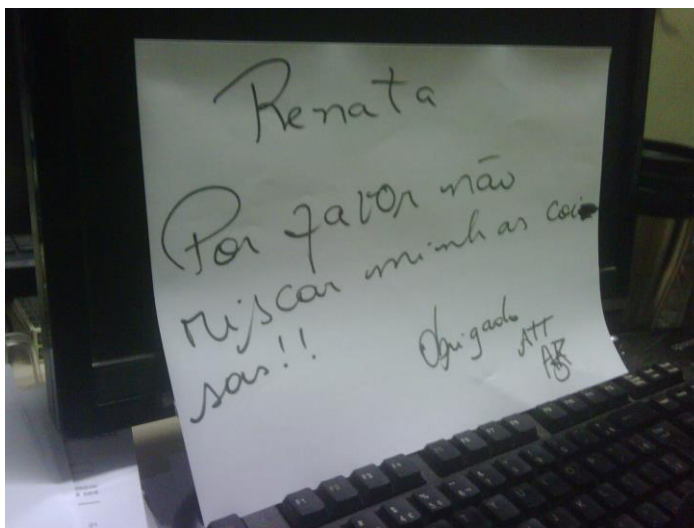 Renata
Por favor não
riscar minhas coi
sas!!
Obrigado
ATT